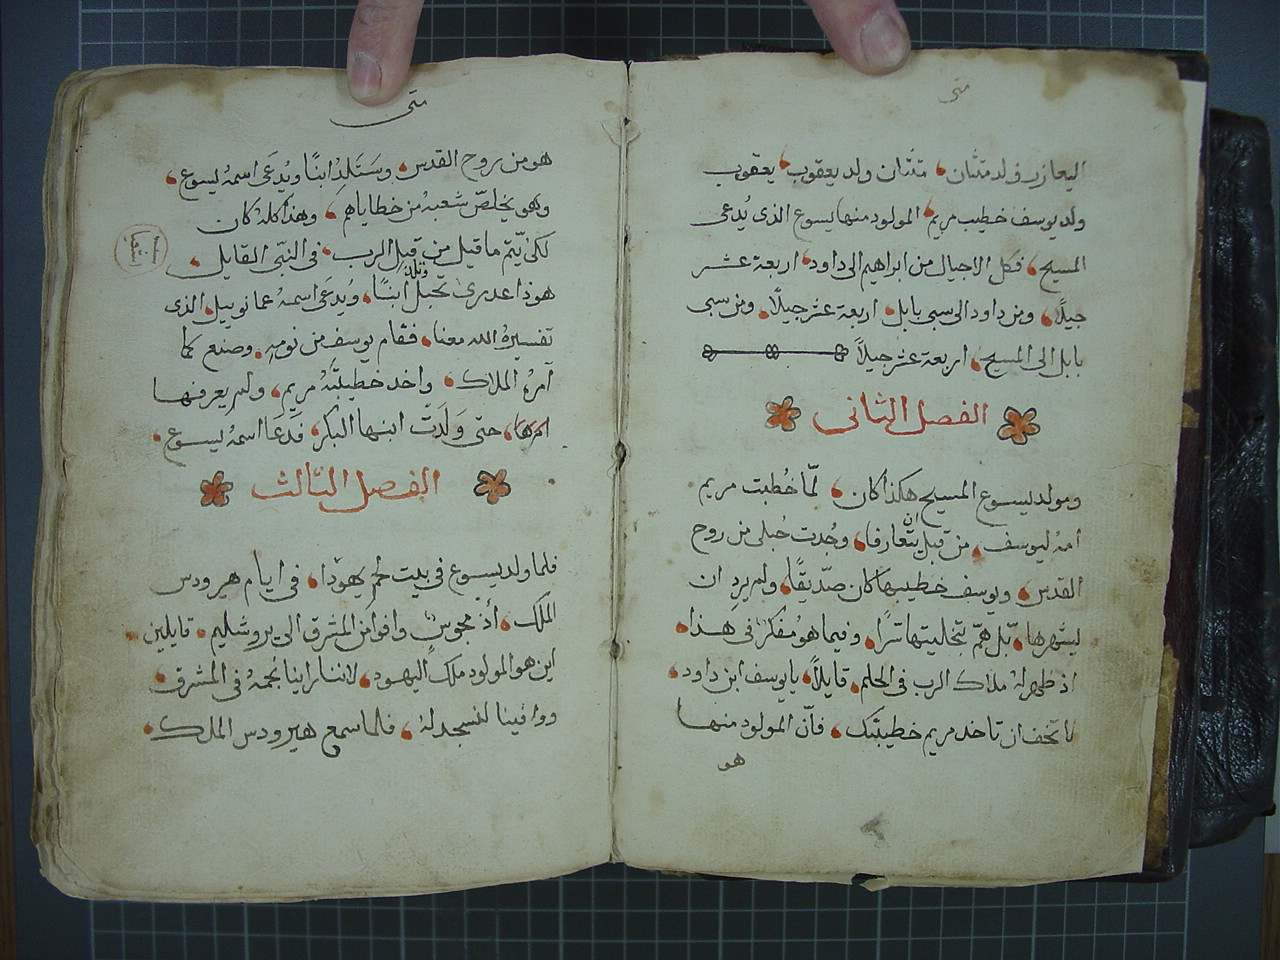 متى
اليعازر ولد متثان، متثان ولد يعقوب، يعقوب
ولد يوسف خطيب مريم، المولود منها يسوع الذى يُدعى
المسيح، فكل الاجيال من ابراهيم الى داود، اربعة عشر
جيلًا، ومن داود الى سبى بابل، اربعة عشر جيلًا، ومن سبى
بابل الى المسيح، اربعة عشر جيلاً
الفصل الثانى
ومولد يسوع المسيح هكذا كان، لمّا خُطبت مريم
امهُ ليوسف، من قبل ان يتعارفا، وجُدت حُبلى من روح
القدس، ويوسف خطيبها كان صدّيقًا، ولم يرد ان
يشهرها، بَل همّ بتخليتها سّرًا، وفيما هو مُفكرٌ فى هذا،
اذ ظهر لهُ ملاك الرب فى الحلم، قايلاً، يا يوسف ابن داود،
لا تخف ان تاخد مريم خطيبتك، فاّن المولود منها
هو
متى
هو من روح القدس، وسَتَلِدُ ابنًا ويُدعَى اسمهُ يسوع،
وهو يُخلصّ شعبهُ من خطاياهم، وهذا كلهُ كان
لكى يّتم ما قيل من قِبل الرب، فى النبّى القايل،
اشعيا
هوذا عدرىَ تحبَل وتلد ابنًا، ويُدعَى اسمهُ عمانوييل، الذى
تفسيرهُ الله معنا، فقام يوسف من نومهِ، وصنع كما
آمرهُ الملاك، واخد خطيبتَهُ مريم، ولم يعرفها
حتى وَلَدَتّ ابنها البكر، فَدَعَا اسمهُ يسوع،
الفصل الثالث
فلما ولد يسوع فى بيت لحم يهودا، فى ايام هيرودس
الملك، أذ مجوسٌ وافوا من المشرق الى يروشليم، قايلين،
اين هو المولود ملك اليهود، لاننا راينا نجمهُ فى المشرق،
ووافينا لنسجد لهُ، فلما سمع هيرودس الملك،